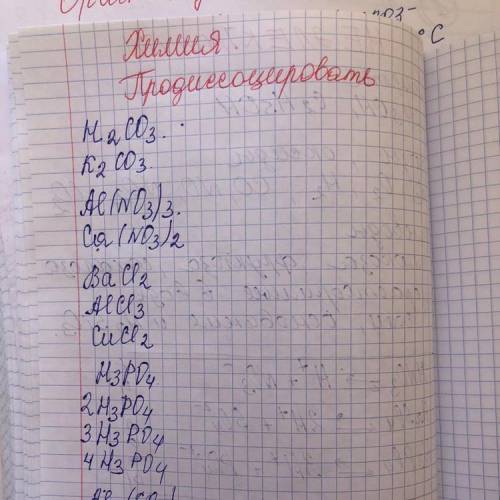 Химия
Продиссоцировать
H2CO3.
K2CO3
Al(NO3)3.
Ca(NO3)2
BaCl2
AlCl3
CuCl2
H3PO4
2H3PO4
3H3PO4
4H3PO4
°C